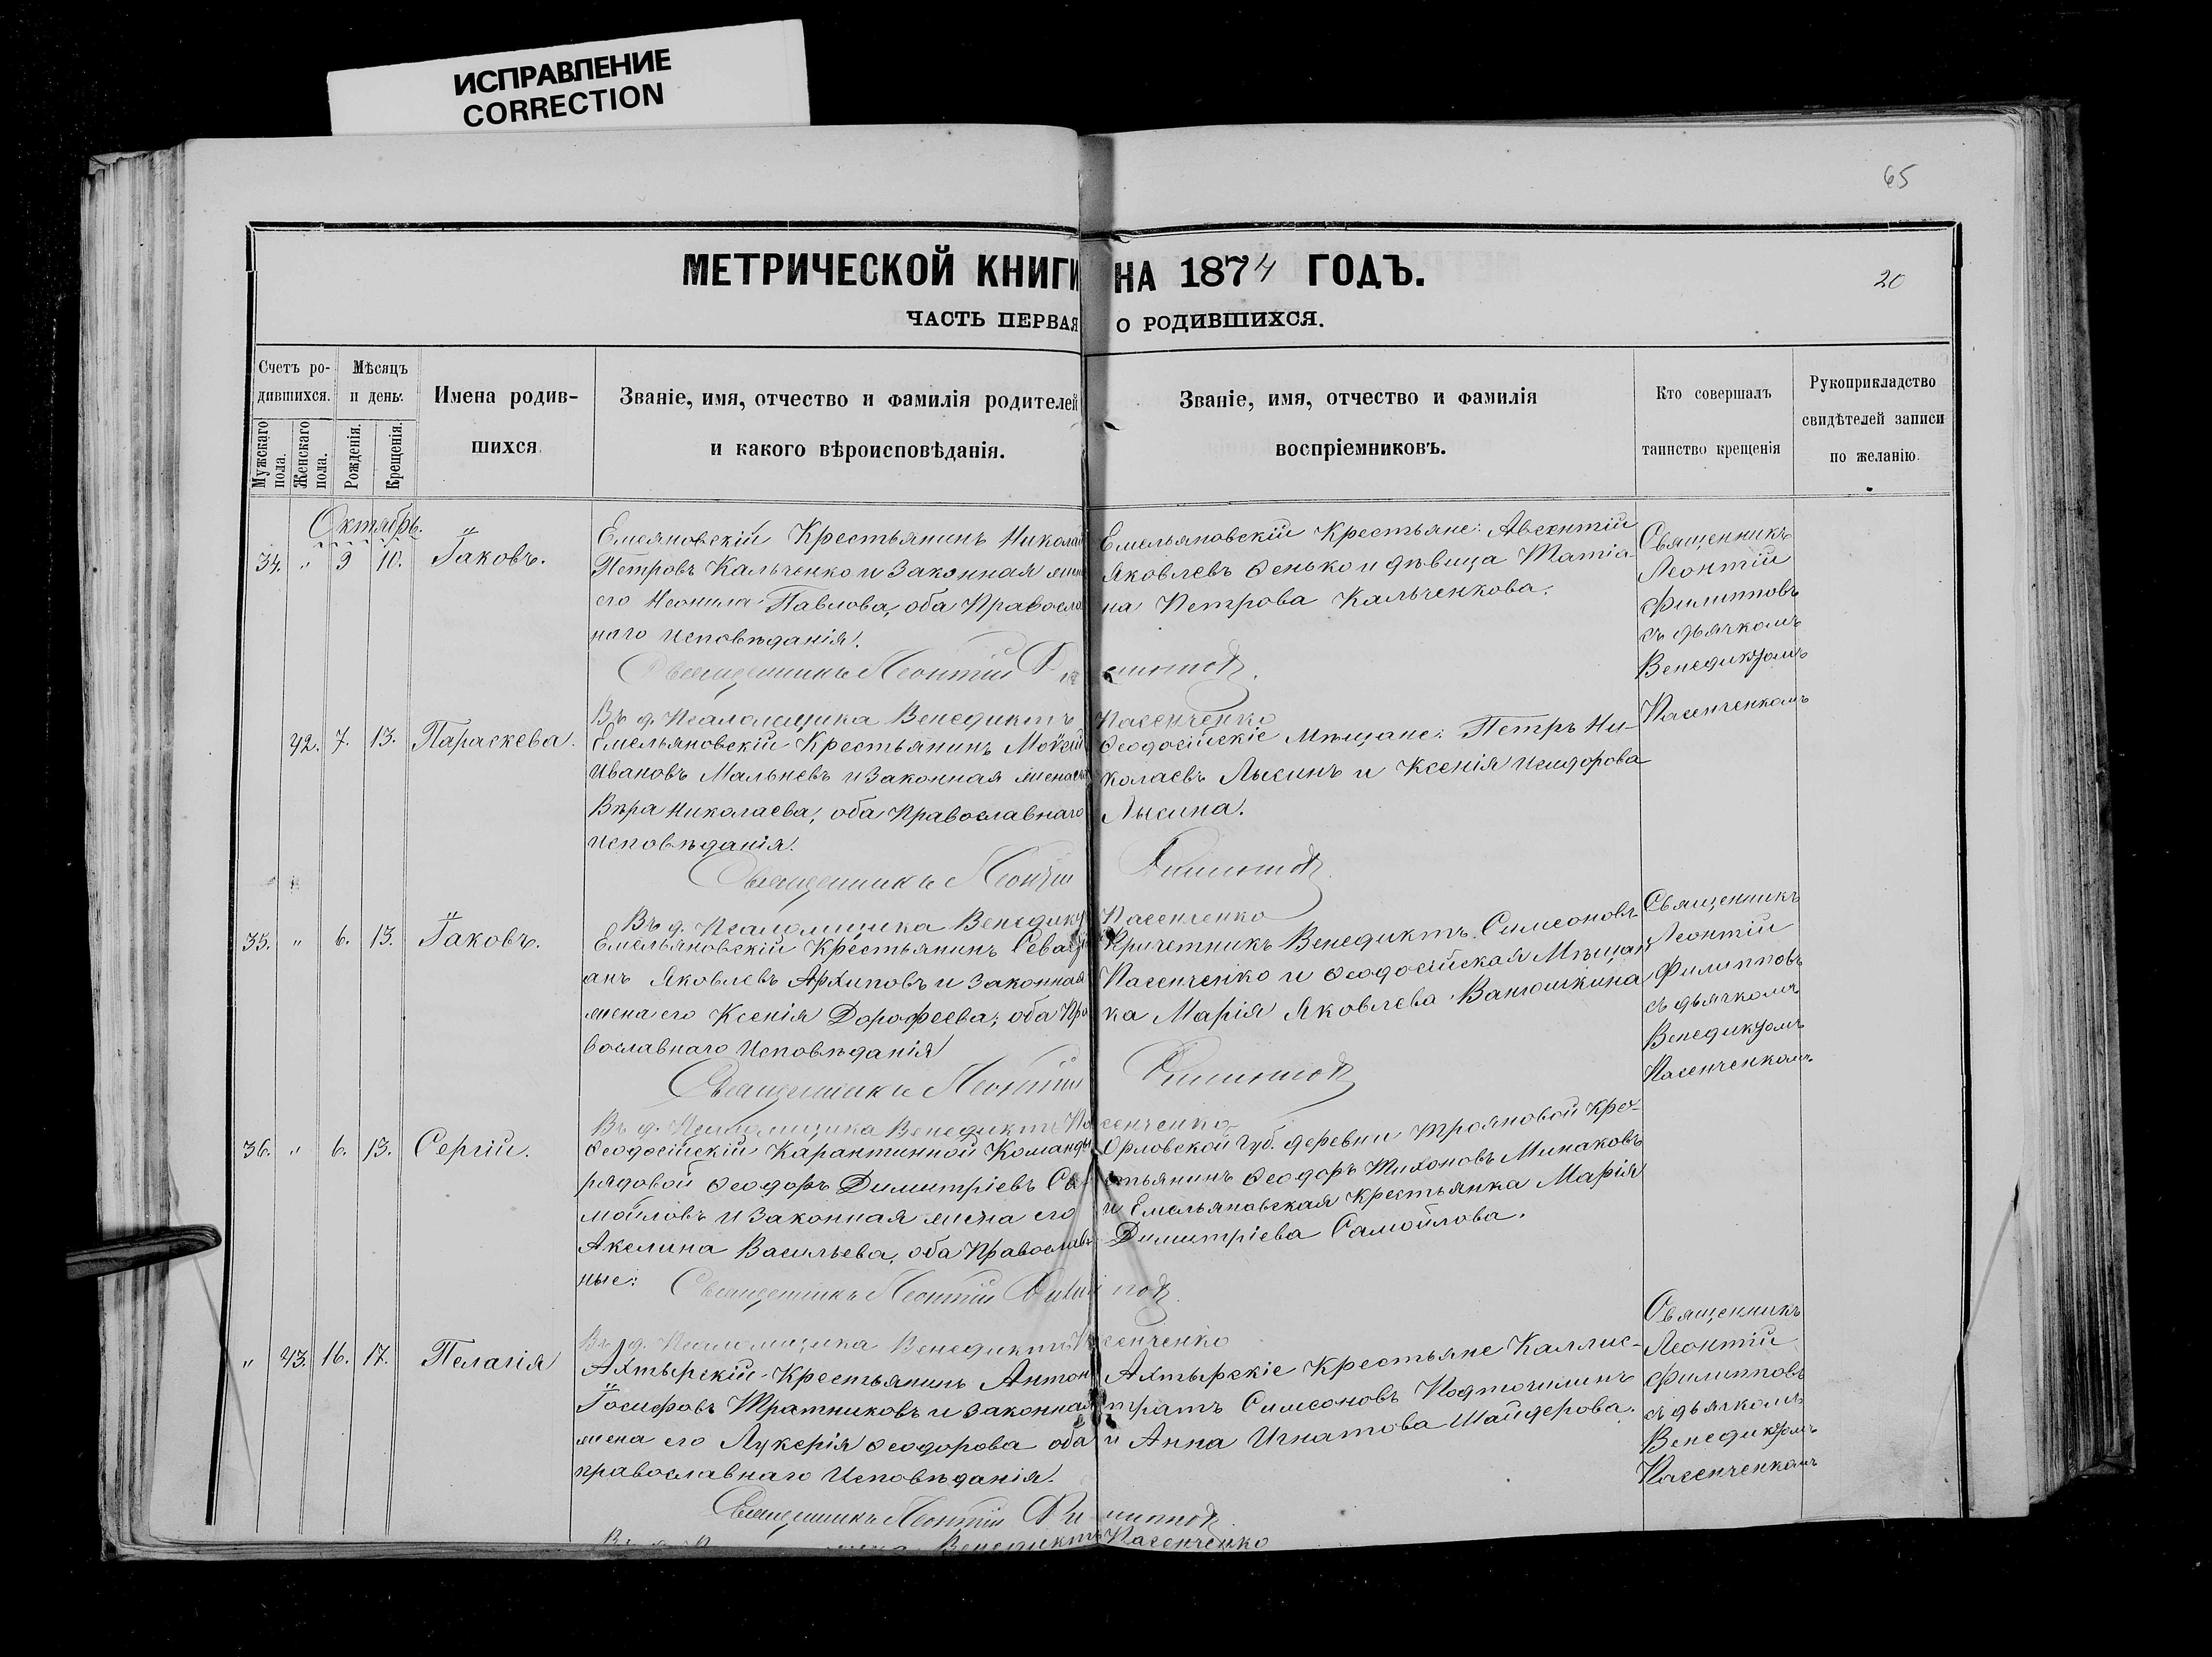 ИСПРАВЛЕНИЕ
CORRECTION
65
МЕТРИЧЕСКОЙ КНИГИ НА 1874 ГОДЪ.
20
ЧАСТЬ ПЕРВАЯ О РОДИВШИХСЯ.
Счетъ ро-
дившихся.
Мужскаго пола.
Женскаго пола.
Мѣсяцъ
и день.
Рожденія.
Крещенія.
Имена родив-
шихся.
Званіе, имя, отчество и фамилія родителей
и какого вѣроисповѣданія.
Званіе, имя, отчество и фамилія
воспріемниковъ.
Кто совершалъ
таинство крещенія
Рукоприкладство
свидѣтелей записи
по желанію.
Октябрь.
34. " 9 10. Іаковъ.
Емеяновскій Крестьянинъ Николай
Петровъ Кальченко и Законная жена
его Неонила Павлова, оба Правосла
наго исповѣданія.
Емельяновскій Крестьяне: Авсентій
Яковлевъ Ѳенько и дѣвица Татіа-
на Петрова Кальченкова.
Священникъ
Леонтій
Филипповъ
съ дьячкомъ
Венедиктомъ
Пасенченкомъ
Священникъ Леонтій Филипповъ.
Въ д. Псаломщика Венедиктъ Пасенченко
42. 7. 13. Параскева.
Емельяновскій Крестьянинъ Моѵсей
Ивановъ Мальневъ и Законная жена его
Вѣра Николаева, оба Православнаго
исповѣданія.
Ѳеодосійскіе Мѣщане: Петръ Ни-
колаевъ Лысинъ и Ксенія Исидорова
Лысина.
Священникъ Леонтій Филипповъ
Въ д. Псаломщика Венедиктъ Пасенченко
35. " 6. 13. Іаковъ.
Емельяновскій Крестьянинъ Севасті
анъ Яковлевъ Архиповъ и Законная
жена его Ксенія Дорофеева; оба Пра
вославнаго Исповѣданія
Причетникъ Венедиктъ Симеоновъ
Пасенченко и Ѳеодосійская Мѣщан
ка Марія Яковлева Ванюшкина
Священникъ
Леонтій
Филипповъ
съ дьячкомъ
Венедиктомъ
Пасенченкомъ
Священникъ Леонтій Филипповъ
Въ д. Псаломщика Венедиктъ Пасенченко
36. " 6. 13. Сергій.
Ѳеодосійскій Карантинной Команды
рядовой Ѳеодоръ Димитріевъ Са-
мойловъ и Законная жена его
Акелина Васильева, оба Православ
ные:
Орловской Губ. деревни Трояновой Кре-
стьянинъ Ѳеодоръ Тихоновъ Минаковъ
и Емельяновская Крестьянка Марія
Димитріева Самойлова.
Священникъ Леонтій Филипповъ.
Въ д. Псаломщика Венедиктъ Пасенченко
" 43. 16. 17. Пелагія
Ахтырскій Крестьянинъ Антон
Іосифовъ Тратниковъ и Законная
жена его Лукерія Ѳеодорова оба
православнаго Исповѣданія.
Ахтырскіе Крестьяне Каллис-
тратъ Симеоновъ Подточилинъ
и Анна Игнатова Шайдерова.
Священникъ
Леонтій
Филипповъ
съ дьячкомъ
Венедиктомъ
Пасенченкомъ
Священникъ Леонтій Филипповъ.
Венедиктъ Пасенченко